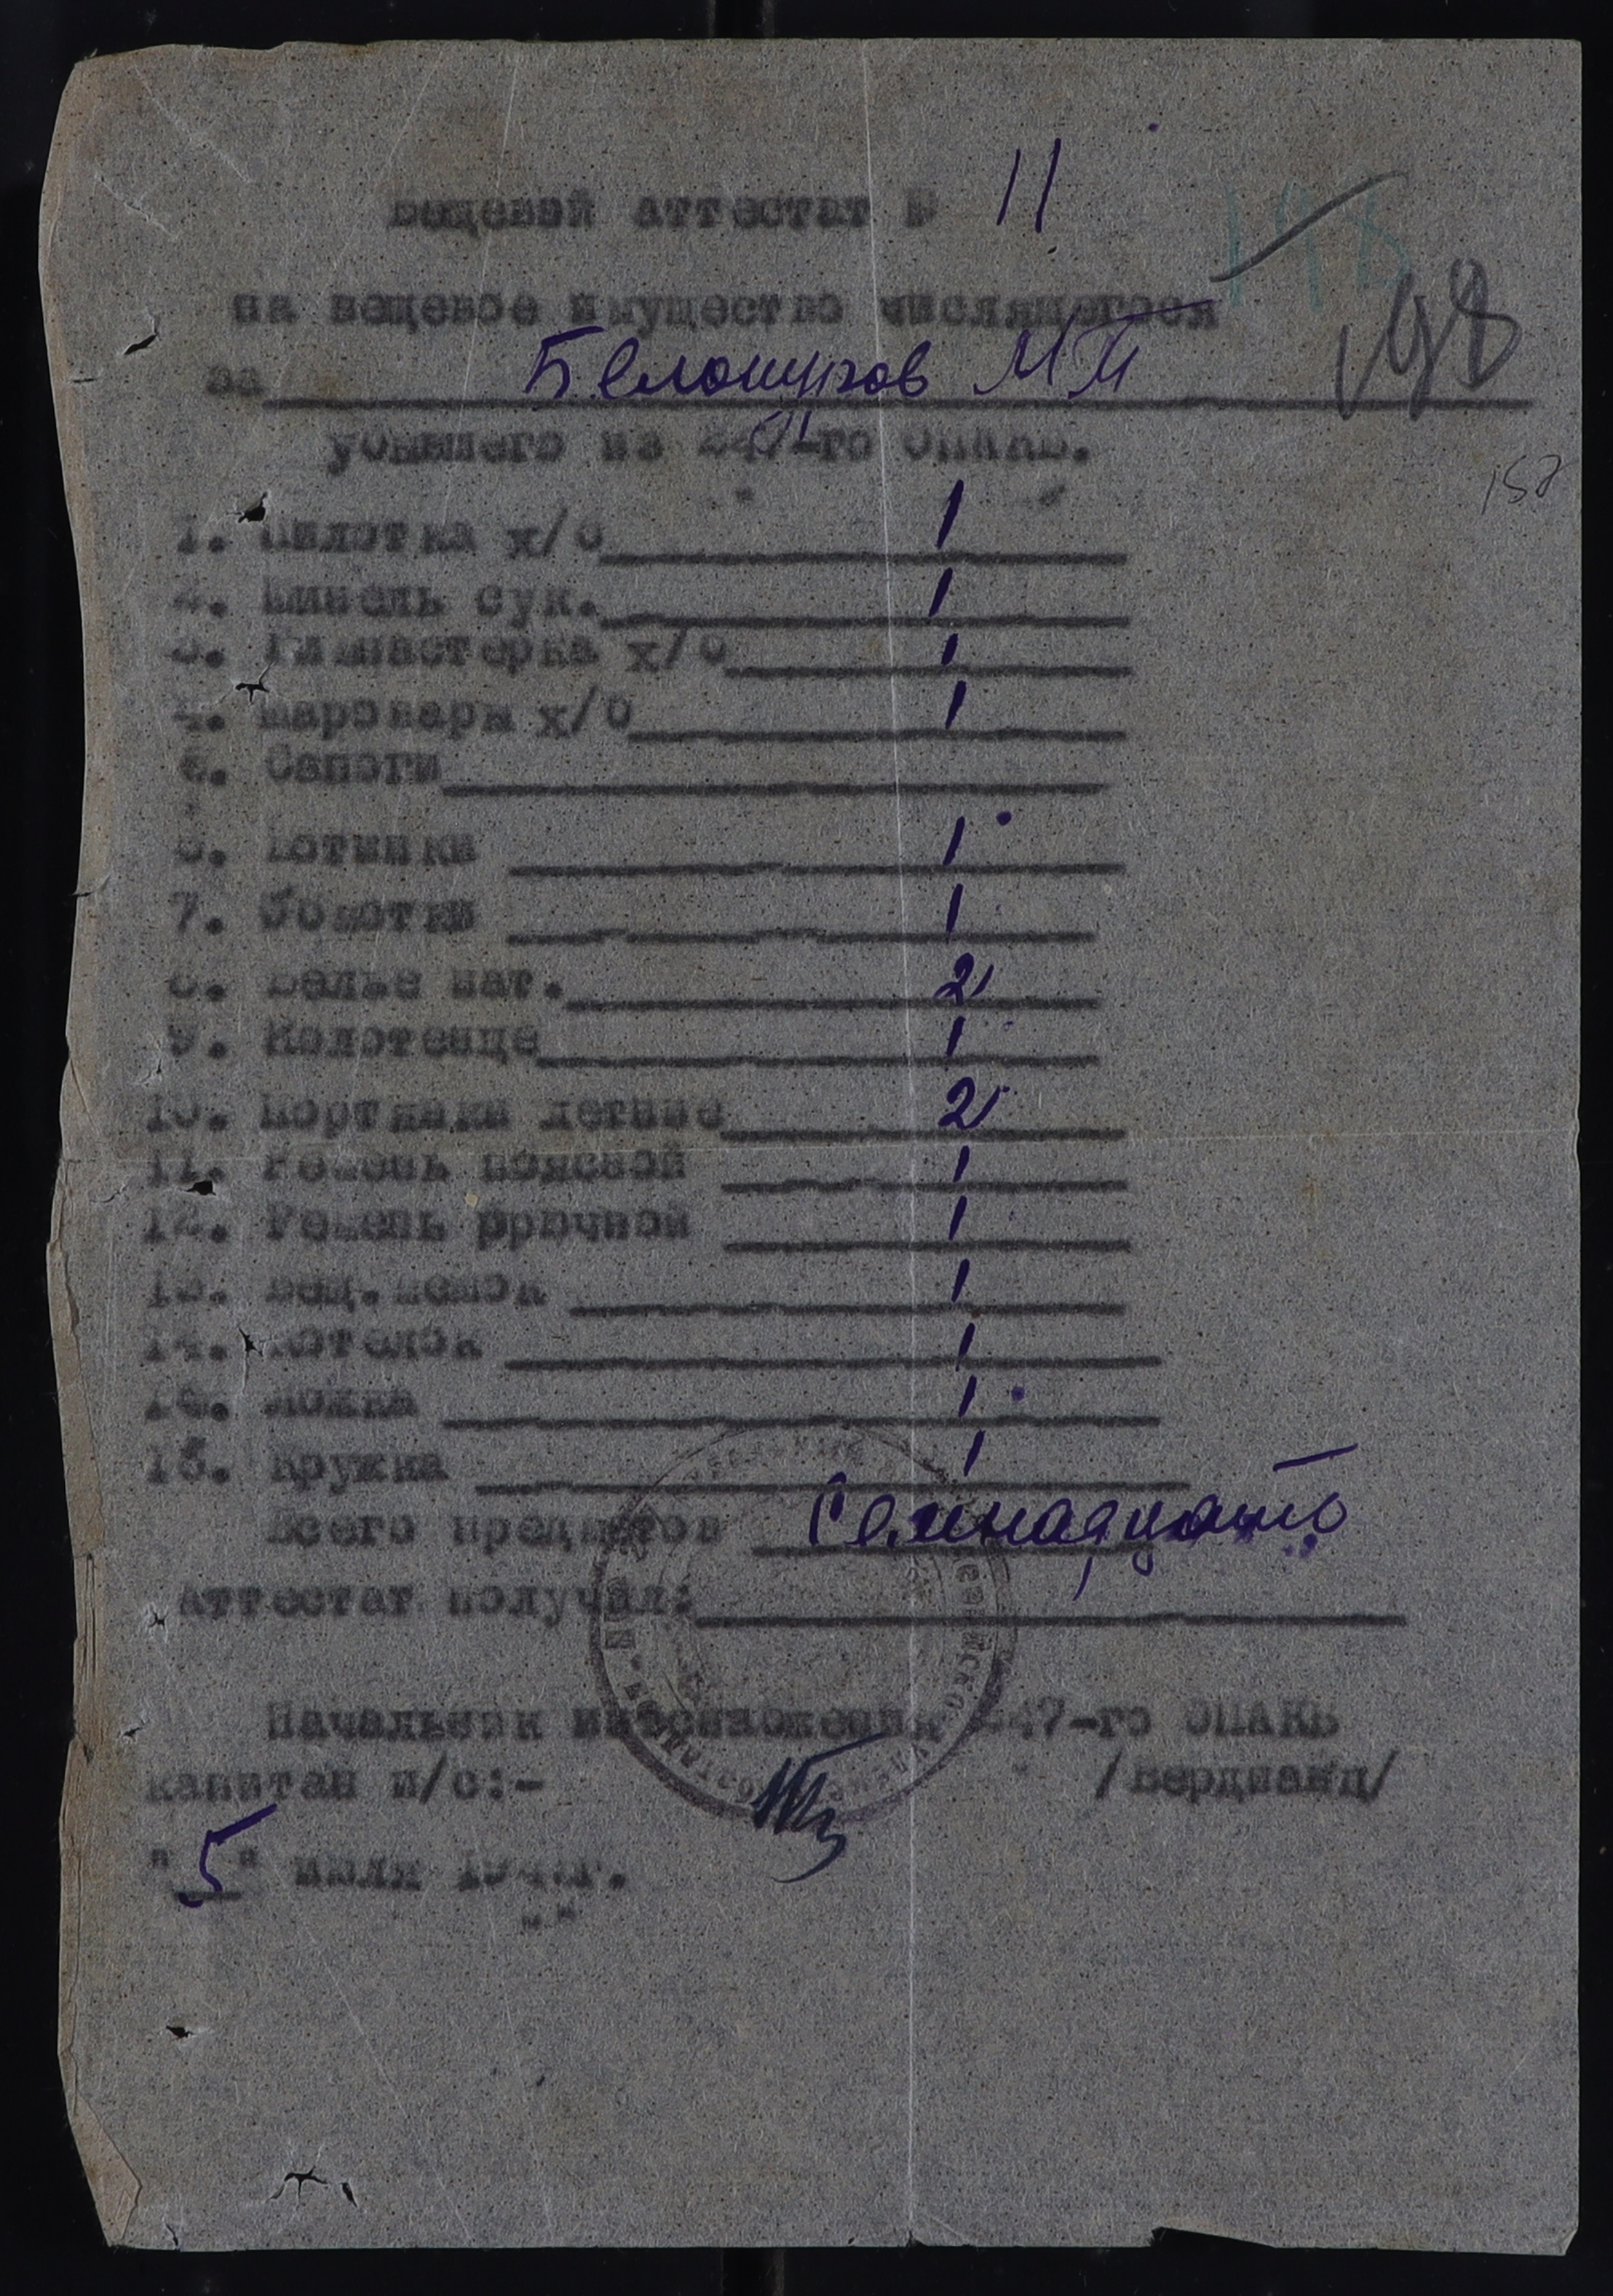 Вещевой аттестат № 11
на вещевое имущество числящегося
за Белошугов М П
убывшего из 247-го ОПАКБ.
198
158
1. Пилотка х/б 1
2. Шинель сук. 1
3. Гимнастерка х/б 1
4. Шаровары х/б 1
5. Сапоги
6. Ботинки 1
7. Обмотки 1
8. Белье нат. 2
9. Полотенце 1
10. Портянки летние 2
11. Ремень поясной 1
12. Ремень брючной 1
13. Вещ.мешок 1
14. Котелок 1
Ложка 1
15. Кружка 1
Всего предметов Семнадцать
Аттестат получил:
Начальник 247-го ОПАКБ
капитан и/с:- /Вердиянц/
"5" июля